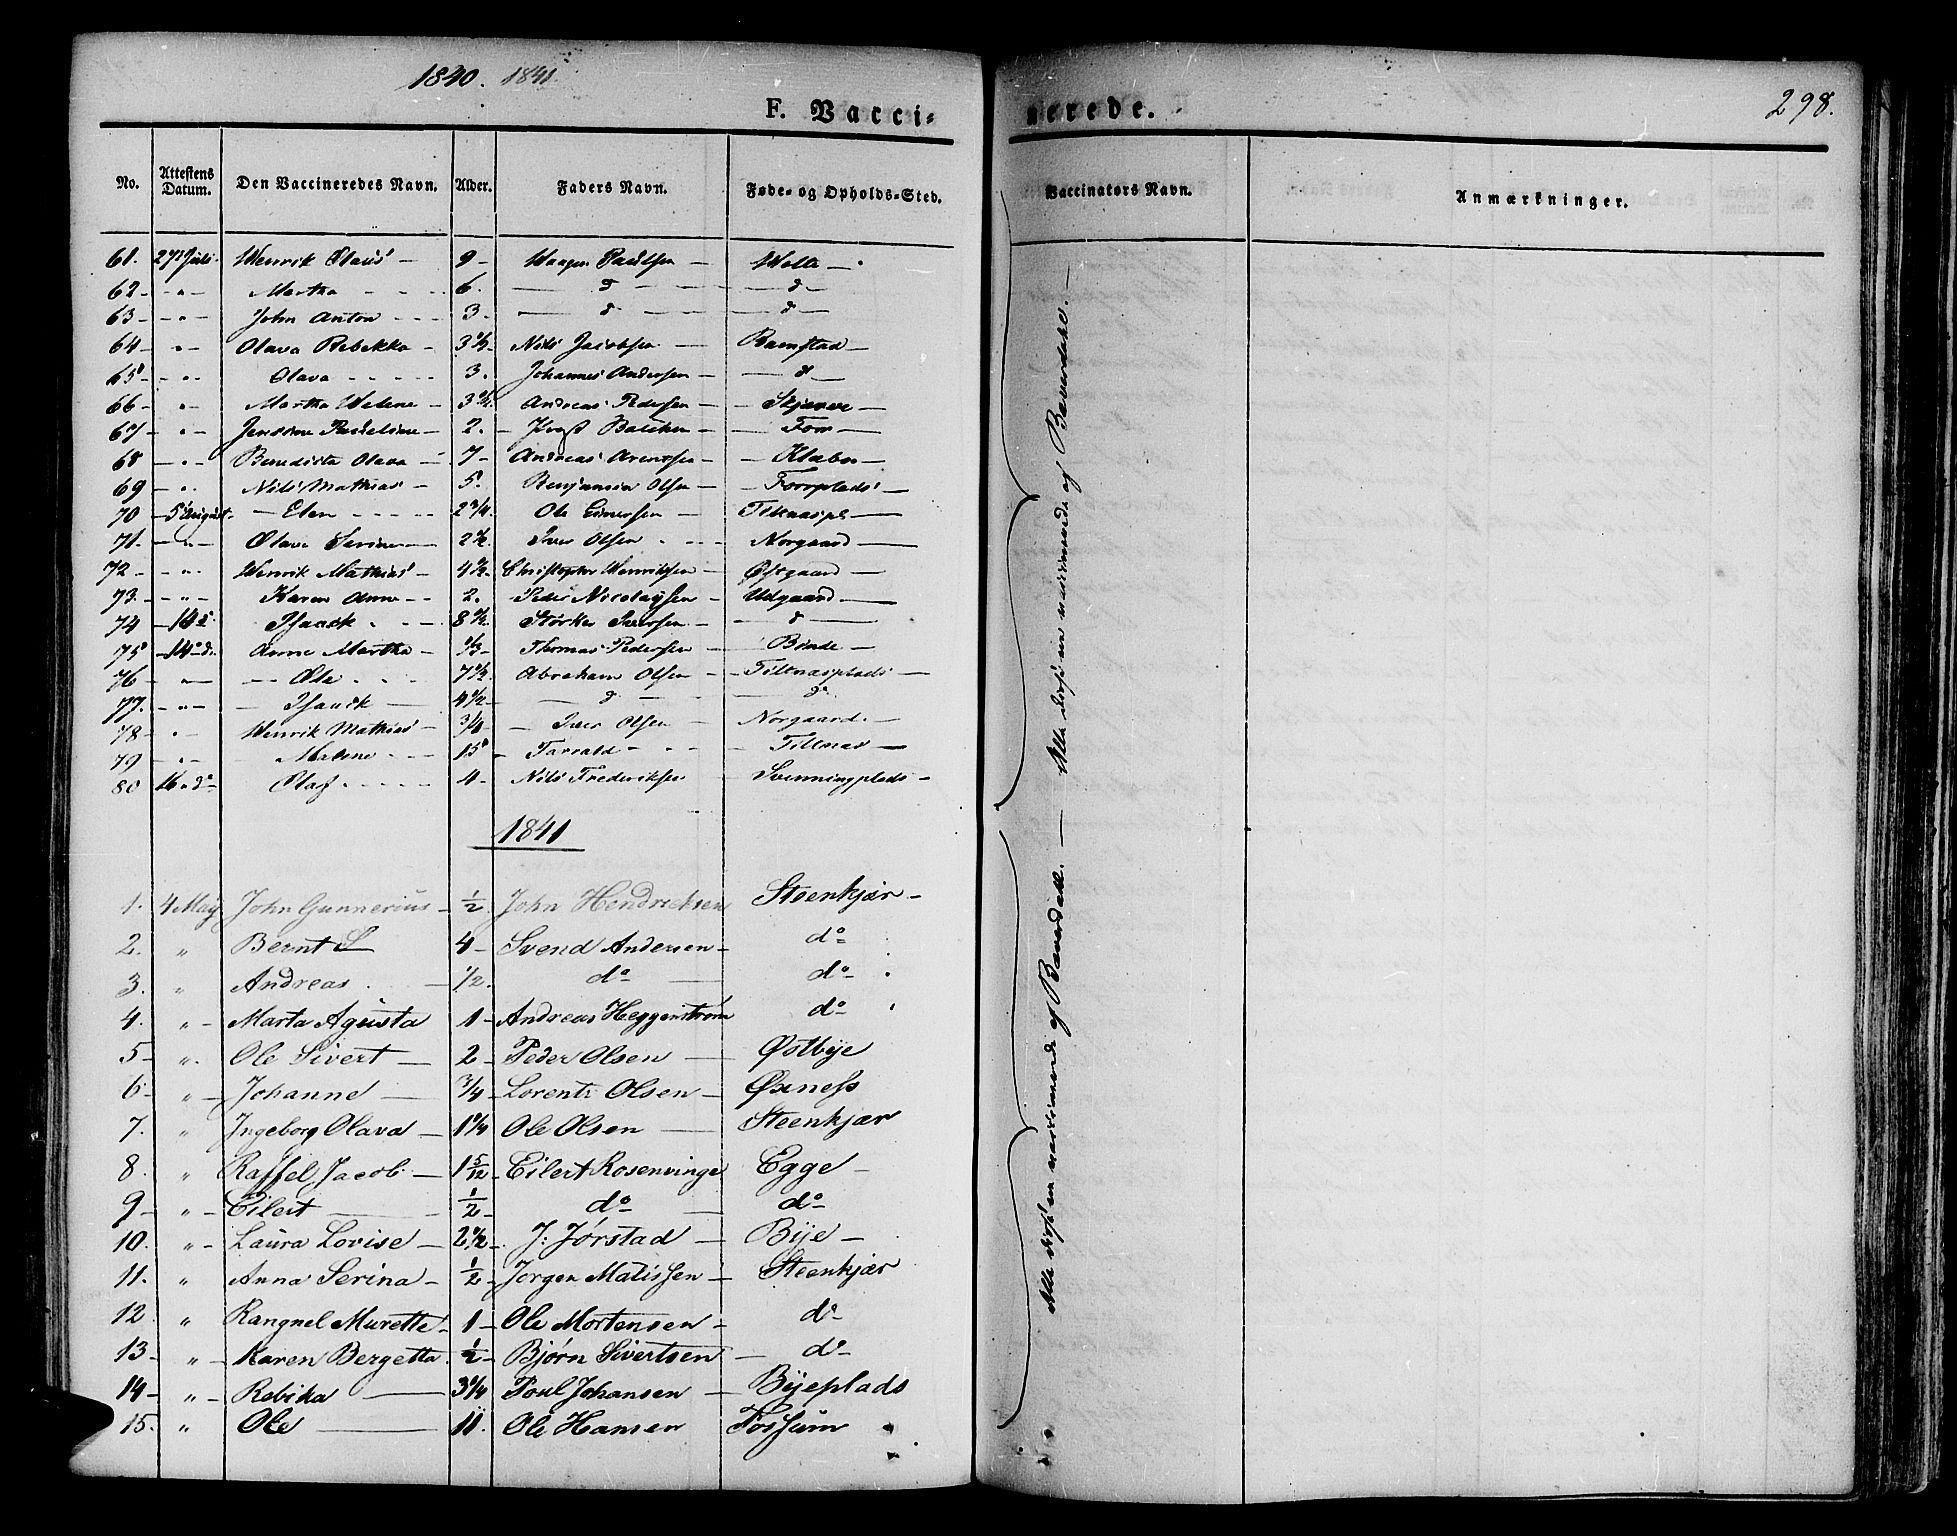 1840. 1841.
F. Vacci-
nerede.
298.
No. Attestens Datum. Den Vaccineredes Navn. Alder. Faders Navn. Føde- og Opholds-Sted. Vaccinators Navn. Anmærkninger.
61. 27 Juli. Henrik Olaus - 9 - Paulsen - -
62 - " - Martha - - - 6. - d - - d -
63 - " - John Anton - - - 3. - d - - d -
64 - " - Olava Rebekka - 3 1/2 - Nils Jacobsen - Ramstad -
65 - " - Olava - - - - 3. Johannes Andersen - - d -
66 - " - Martha Helene - 3 1/2. Andreas Pedersen - -
67 - " - - 2. - -
68 - " - Benedicta Olava - 7 - Andreas Arentsen - -
69 - " - Nils Mathias - 5. Benjamin Olsen - - Forrplads -
70 - 5 August. - Elen - - - - 2 3/4. Ole - -
71. - " - Olava Serine - 2 1/2. Iver Olsen - - - Norgaard -
72 - - " - Henrik Mathias - 4 1/2 - Christopher Henriksen - Østgaard -
73. - " - Karen Anne - - 2. - Peder Nicolaysen - Udgaard -
74 - 14 d. Isaack - - 8 1/2. Størker Iversen - - d -
75 - 14 d. Anne Martha - 1/3 - Thomas Pedersen - Binde -
76 - - - Ole - - - 7 1/2. Abraham Olsen - - Tiltnæsplads -
77. - " - - Isaack - 4 1/2 - - d - - d -
78 - " - Henrik Mathias - 3/4 - - Iver Olsen - Norgaard. -
79 - " - - Malene - - - 15 - Tarrald - - - - Tiltnæs -
80 16. d - Olaf - - - - - 4 - Nils Frederiksen - Svenningplads -
1841
1. 4 May John Gunnerius - 1/2. John Hendricksen Steenkjær -
2. " Bernt S 4 - Svend Andersen - do -
3. " Andreas. - 1/2. do - do -
4. " - Marta Agusta 1 - Andreas Heggenstrøm do -
5 - ". Ole Sivert - 2 - Peder Olsen - Østbye
6 - " - Johanne - 3/4 - Lorents Olsen - Øxness
7. " Ingeborg Olava - 1 1/4 Ole Olsen - Steenkjær
8. " Raffel Jacob. - 1 5/12 - Eilert Rosenvinge Egge -
9 - " - Eilert - - 1/2 - do - do -
10. " - Laura Lovise - 2 1/2 - J. Jørstad - Bye -
11. " Anna Serina - 1/2 - Jorgen Matissen - Steenkjær
12. " Rangnel Murette - 1 - Ole Mortensen - do -
13 - " - Karen Bergetta. 1/2 - Bjørn Sivertsen - do -
14 - " - Rebika - 3 1/4 Poul Johansen - Byeplads
15. " Ole - 11. Ole Hansen Fossum